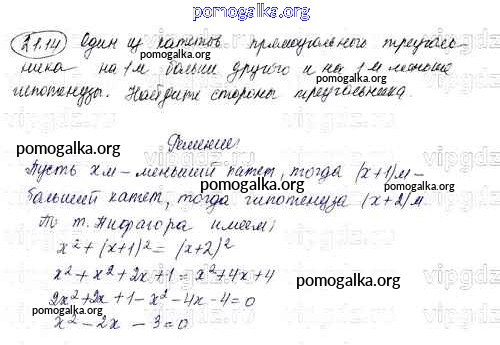 pomogalka.org
21.14 Один из катетов прямоуголного треуголь-
ника на 1 м больше другого и на 1 м меньше
гипотенузы. Найдите стороны треугольника.
pomogalka.org
Решение:
pomogalka.org
Пусть x м - меньший катет, тогда (x+1) м -
больший катет, тогда гипотенуза (x+2) м.
По т. Пифагора имеем:
x² + (x+1)² = (x+2)²
x² + x² + 2x + 1 = x² + 4x + 4
2x² + 2x + 1 - x² - 4x - 4 = 0
x² - 2x - 3 = 0
pomogalka.org
pomogalka.org
pomogalka.org
pomogalka.org
vipgdz